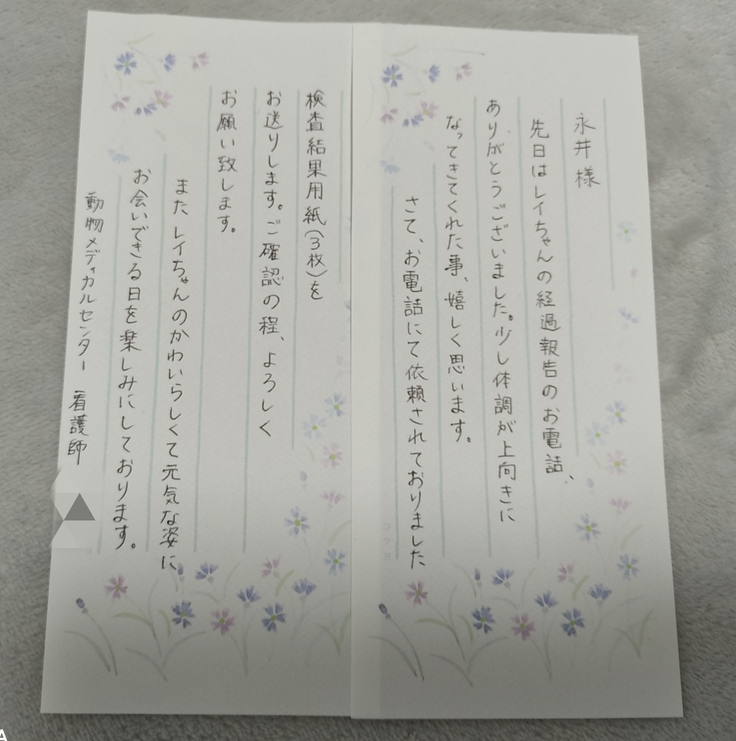 永井様
先日はレイちゃんの経過報告のお電話、
ありがとうございました。少し体調が上向きに
なってきてくれた事、嬉しく思います。
さて、お電話にて依頼されておりました
検査結果用紙(3枚)を
お送りします。ご確認の程、よろしく
お願い致します。
またレイちゃんのかわいらしくて元気な姿に
お会いできる日を楽しみにしております。
動物メディカルセンター 看護師